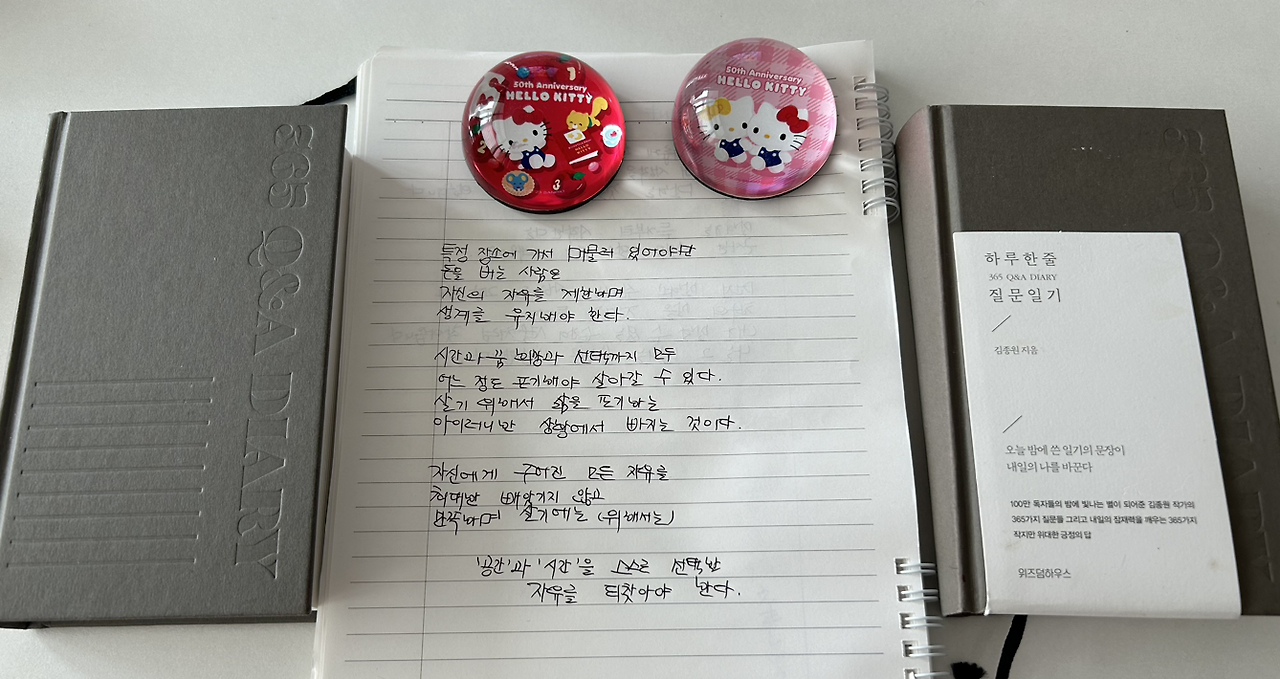 50th Anniversary
HELLO KITTY
50th Anniversary
HELLO KITTY
365 Q&A DIARY
특정 장소에 가서 머물러 있어야만
돈을 버는 사람은
자신의 자유를 제한하며
생계를 유지해야 한다.
시간과 꿈 희망과 선택까지 모두
어느 정도 포기해야 살아갈 수 있다.
살기 위해서 삶을 포기하는
아이러니한 상황에서 빠지는 것이다.
자신에게 주어진 모든 자유를
최대한 빼앗기지 않고
만족하며 살기에는 (위해서는)
'공간'과 '시간'을 스스로 선택한
자유를 되찾아야 한다.
365 Q&A DIARY
하루 한 줄
365 Q&A DIARY
질문 일기
김종원 지음
오늘 밤에 쓴 일기의 문장이
내일의 나를 바꾼다
100만 독자들의 밤에 빛나는 별이 되어준 김종원 작가의
365가지 질문들 그리고 내일의 잠재력을 깨우는 365가지
작지만 위대한 긍정의 답
위즈덤하우스